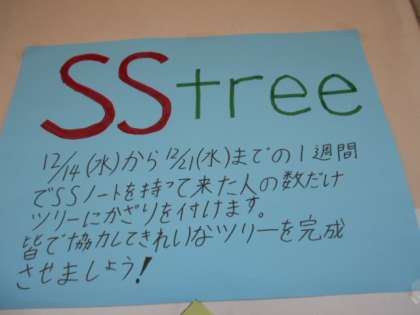 SStree
12/14(水)から12/21(水)までの1週間
でSSノートを持って来た人の数だけ
ツリーにかざりを付けます。
皆で協力してきれいなツリーを完成
させましょう!